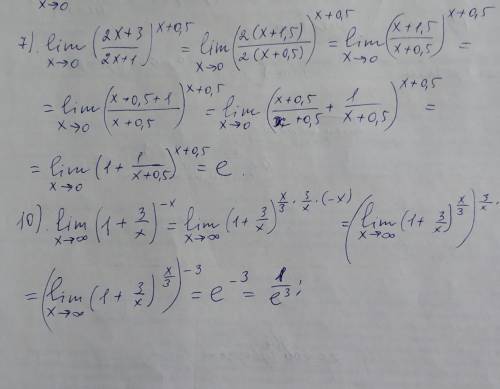 x→0
7). lim x→0 (2x+3 / 2x+1)^(x+0,5) = lim x→0 (2(x+1,5) / 2(x+0,5))^(x+0,5) = lim x→0 (x+1,5 / x+0,5)^(x+0,5) =
= lim x→0 (x+0,5+1 / x+0,5)^(x+0,5) = lim x→0 (x+0,5 / x+0,5 + 1 / x+0,5)^(x+0,5) =
= lim x→0 (1 + 1 / x+0,5)^(x+0,5) = e.
10). lim x→∞ (1 + 3/x)^(-x) = lim x→∞ (1 + 3/x)^(x/3 · 3/x · (-x)) = (lim x→∞ (1 + 3/x)^(x/3))^(3/x ·
= (lim x→∞ (1 + 3/x)^(x/3))^(-3) = e^(-3) = 1/e³;